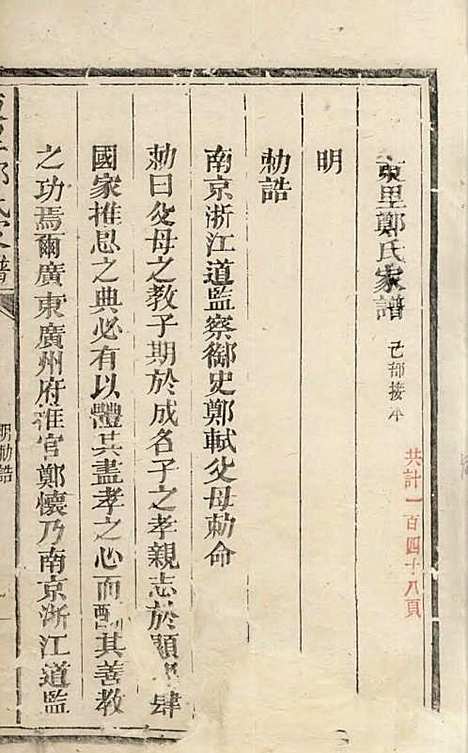 東里鄭氏家譜 己部接本
共計一百四十八頁
明
勅誥
南京浙江道監察御史鄭軾父母勅命
勅曰父母之教子期於成名子之孝親志於顯 肆
國家推恩之典必有以體其盡孝之心而酬其善教
之功焉爾廣東廣州府推官鄭懷乃南京浙江道監
氏家譜
明勅誥